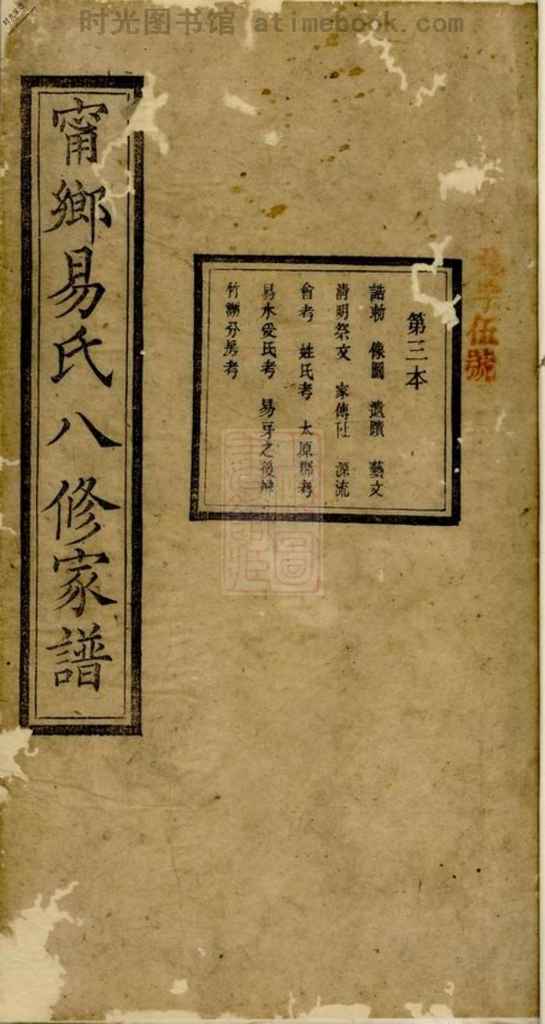 时光图书馆 atimebook.com
甯鄉易氏八修家譜
第三本
誥勅 像圖 遺蹟 藝文
清明祭文 家傳 源流
會考 姓氏考 太原郡考
易水受氏考 易牙之後辨
竹湖分房考
字伍號